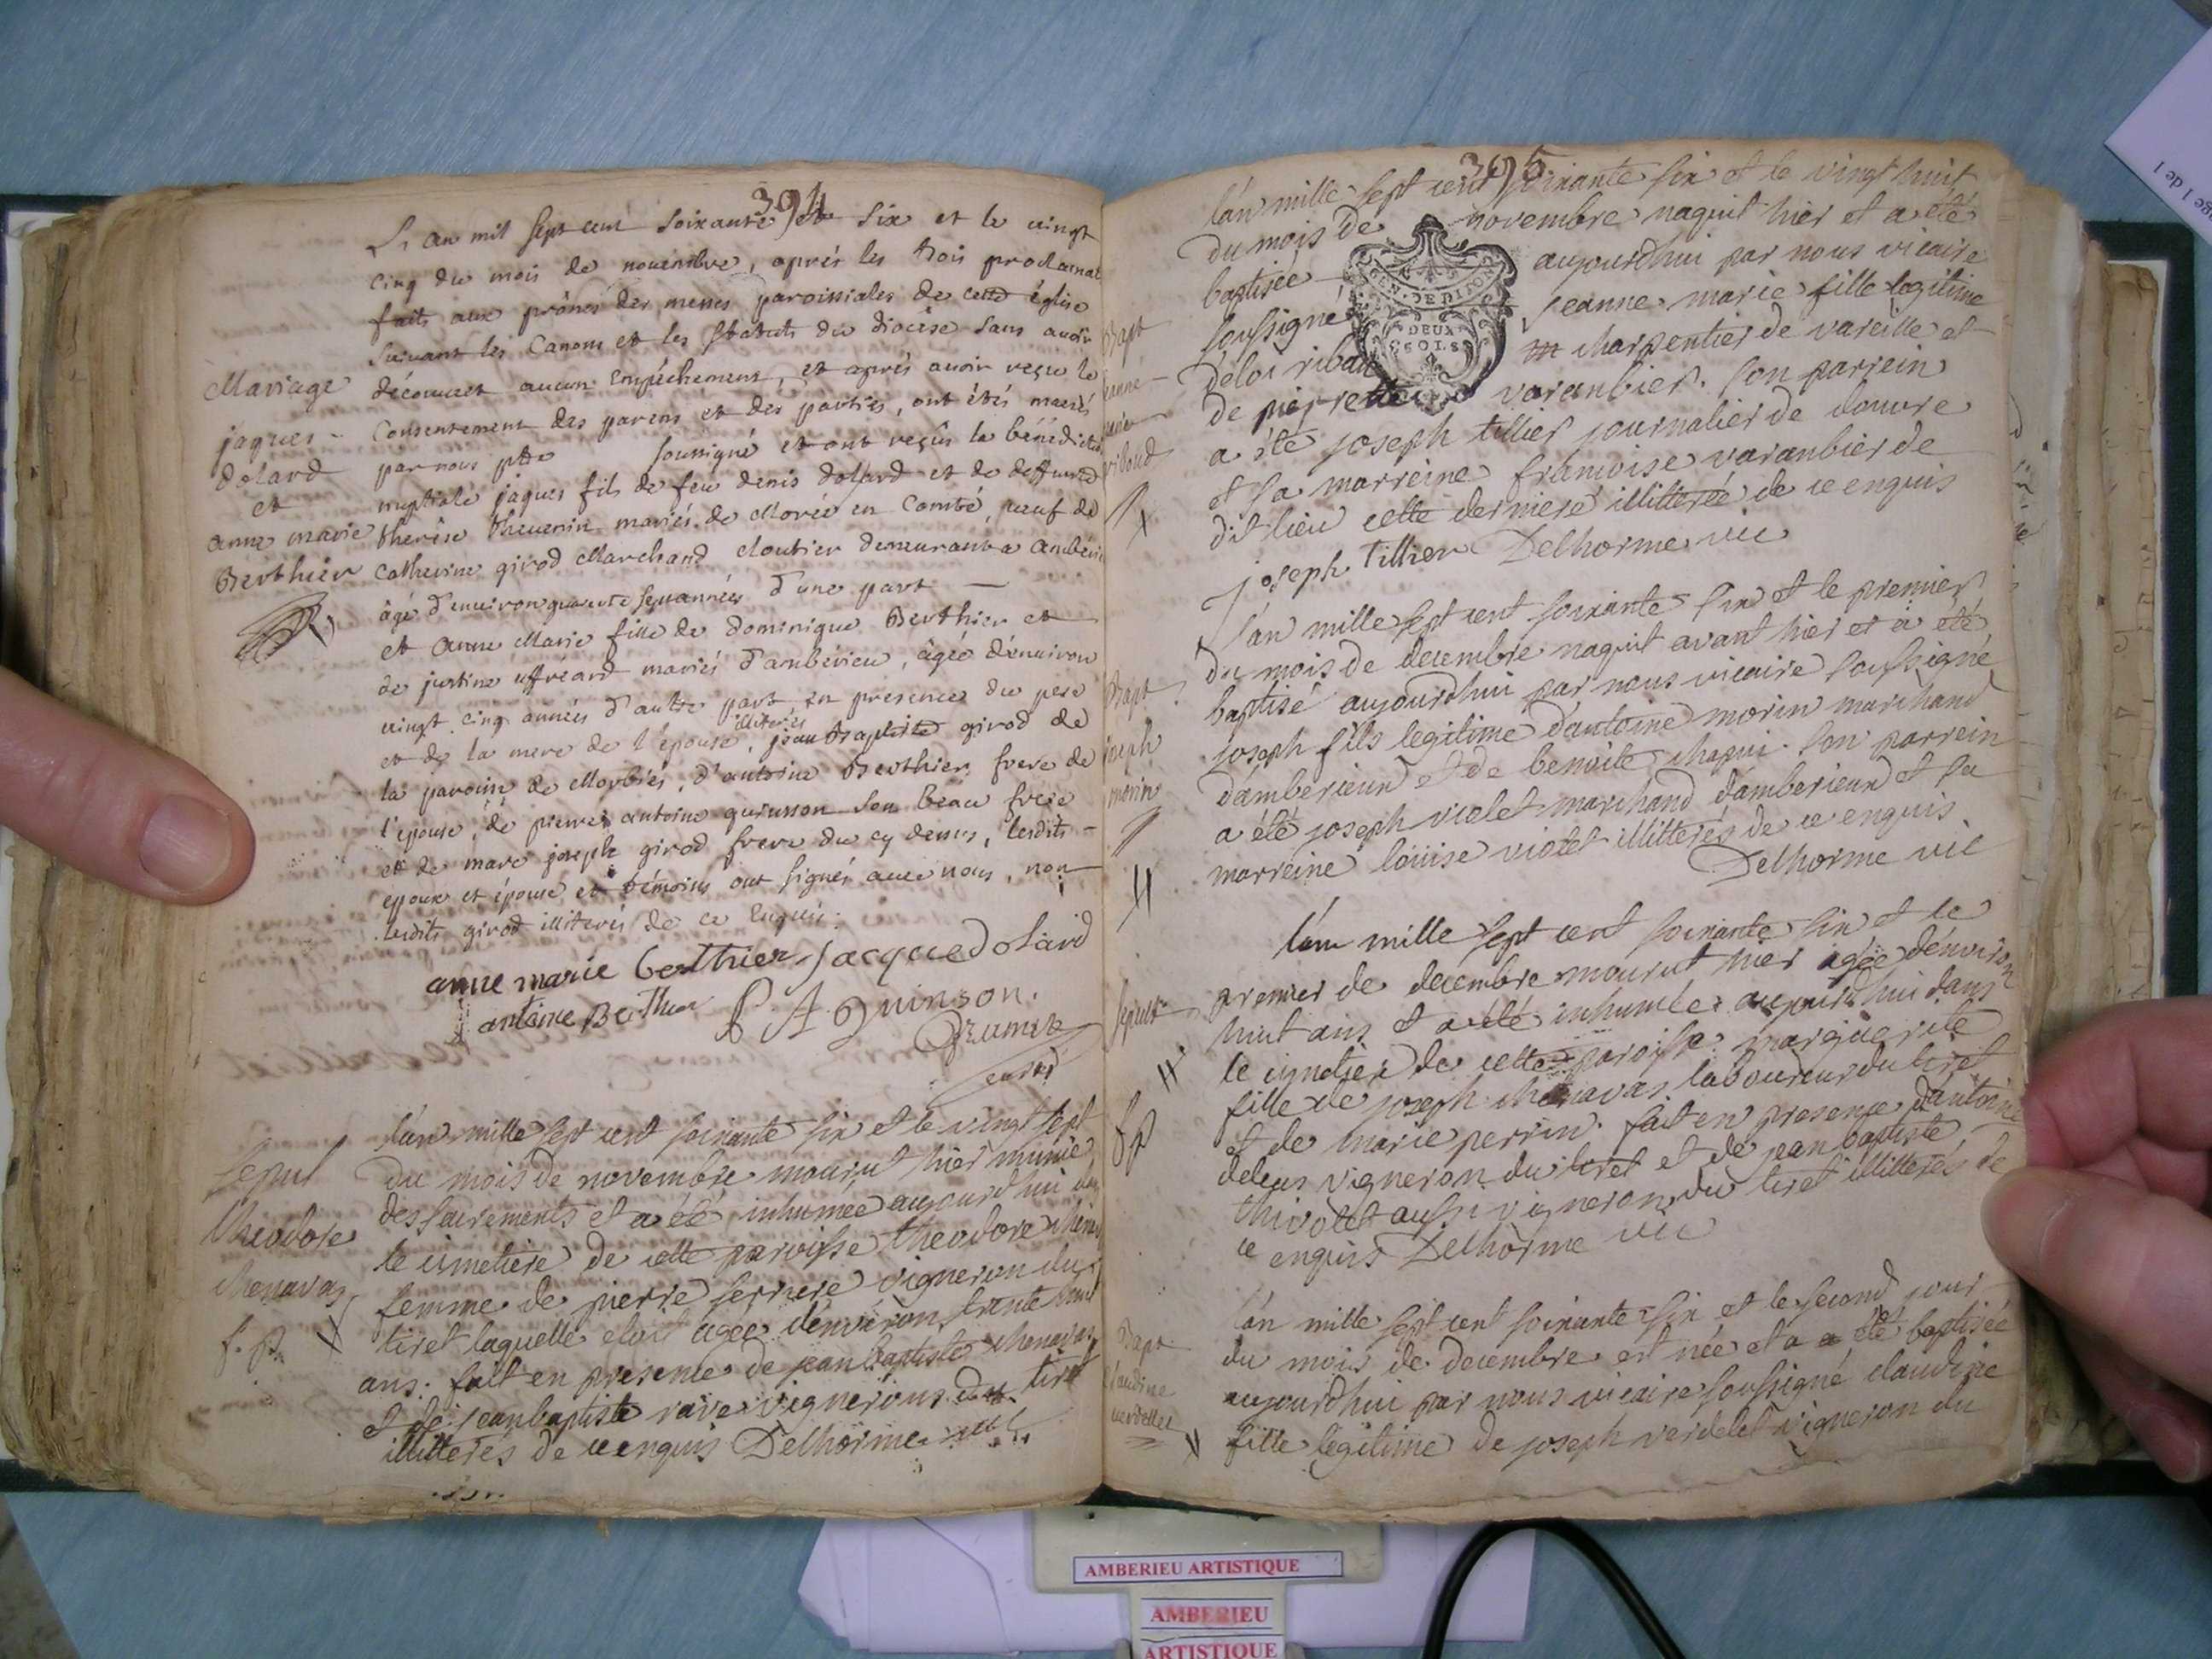 394
L'an mil sept cent soixante et six et le vingt
cinq du mois de novembre, aprés les trois proclamat
faits aux prônes des messes paroissiales de cette église
suivant les Canons et les statuts du diocèse sans avoir
découvert aucun empéchement, et aprés avoir reçu le
consentement des parens et des parties, ont étés mariés
par nous ptre soussigné et ont reçûs la bénédiction
nuptiale jaques fils de feu denis dolard et de deffunte
therèse thevenin mariés de Morée en Comté, veuf de
Catherine girod Marchand cloutier demeurant a Ambérieu
âgé d'environ quarante sept années d'une part
et Anne Marie fille de dominique Berthier et
de justine uffréard mariés d'ambérieu, âgée d'environ
vingt cinq années d'autre part en presence du pere
et de la mere de l'epouse, illiterés jean baptiste girod de
la paroisse de Morbiés, d'antoine Berthier frere de
l'epouse, de pierre antoine quinsson son beau frere
et de marc joseph girod frere du cy dessus, lesdits
epoux et épouse et témoins ont signés avec nous, non
lesdits girod illiterés de ce enquis.
Mariage
jaques
dolard
et
anne marie
Berthier
anne marie berthier Jacque dolard
antoine Berthier P A Quinson.
curé
l'an mille sept cent soixante six et le vingt sept
du mois de novembre mourut hier munie
des sacrements et a été inhumée aujourd'hui dans
le cimetiere de cette paroisse theodore chena
femme de pierre serriere vigneron du
tiret laquelle etoit agée d'environ trente huit
ans. fait en presence de jean baptiste chenavas
et de jean baptiste rave vignerons du tiret
illitterés de ce enquis Delhorme vic
Sepul
theodore
chenavas
f. p.
395
l'an mille sept cent soixante six et le vingt huit
du mois de novembre naquit hier et a été
baptisée aujourd'hui par nous vicaire
soussigné jeanne marie fille legitime
d'eloi ribau charpentier de vareille et
de pierrette varanbier. son parrein
a été joseph tillier journalier de douvre
et sa marreine francoise varanbier de
dit lieu cette derniere illitterée de ce enquis
joseph tillier Delhorme vic
GEN. DE DIJON
DEUX
SOLS
Bapt
jeanne
marie
riboud
l'an mille sept cent soixante six et le premier
du mois de decembre naquit avant hier et a été
baptisé aujourd'hui par nous vicaire soussigné
joseph fils legitime d'antoine morin marchand
d'amberieux et de benoite chapui. son parrein
a été joseph violet marchand d'amberieux et sa
marreine louise violet illitterés de ce enquis
Delhorme vic
Bapt
joseph
morin
l'an mille sept cent soixante six et le
premier de decembre mourut hier agée d'environ
huit ans et a été inhumée aujourd'hui dans
le cimetiere de cette paroisse marguerite
fille de joseph chenavas laboureur du tiret
et de marie perrin. fait en presence d'antoine
deleus vigneron du tiret et de jean baptiste
thivolet aussi vigneron du tiret illitterés de
ce enquis Delhorme vic
sepult
f p
l'an mille sept cent soixante six et le second jour
du mois de decembre est née et a été baptisée
aujourd'hui par nous vicaire soussigné claudine
fille legitime de joseph verdelet vigneron du
Bapt
claudine
verdellet
AMBERIEU ARTISTIQUE
AMBERIEU
ARTISTIQUE